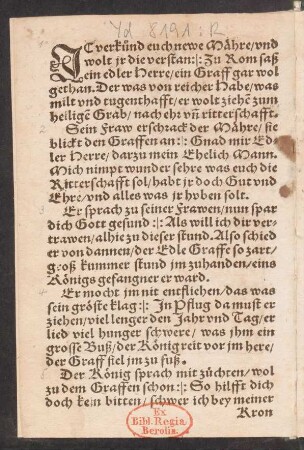 Yd 8191:R
IC verkünd euch newe Mähre/vnd
wolt jr die verstan:|: Zu Rom saß
ein edler Herre/ein Graff gar wol
gethan. Der was von reicher Habe/was
milt vnd tugenthafft/er wolt ziehē zum
heiligē Grab/nach ehr vn̄ ritterschafft.
Sein Fraw erschrack der Mähre/sie
blickt den Graffen an:|: Gnad mir Ed-
ler Herre/darzu mein Ehelich Mann.
Mich nimpt wunder sehre was euch die
Ritterschafft sol/habt jr doch Gut vnd
Ehre/vnd alles was jr hyben solt.
Er sprach zu seiner Frawen/nun spar
dich Gott gesund:|: Als will ich dir ver-
trawen/alhie zu dieser stund. Also schied
er von dannen/der Edle Graffe so zart/
groß kummer stund jm zuhanden/eins
Königs gefangner er ward.
Er mocht jm nit entfliehen/das was
sein gröste klag:|: In Pflug da must er
ziehen/viel lenger den Jahr vnd Tag/er
lied viel hunger schwere/was jhm ein
grosse Buß/der König reit vor jm here/
der Graff fiel jm zu fuß.
Der König sprach mit züchten/wol
zu dem Graffen schon:|: So hilfft dich
doch kein bitten/schwer ich bey meiner
Kron
Ex
Bibl. Regia
Berolin.